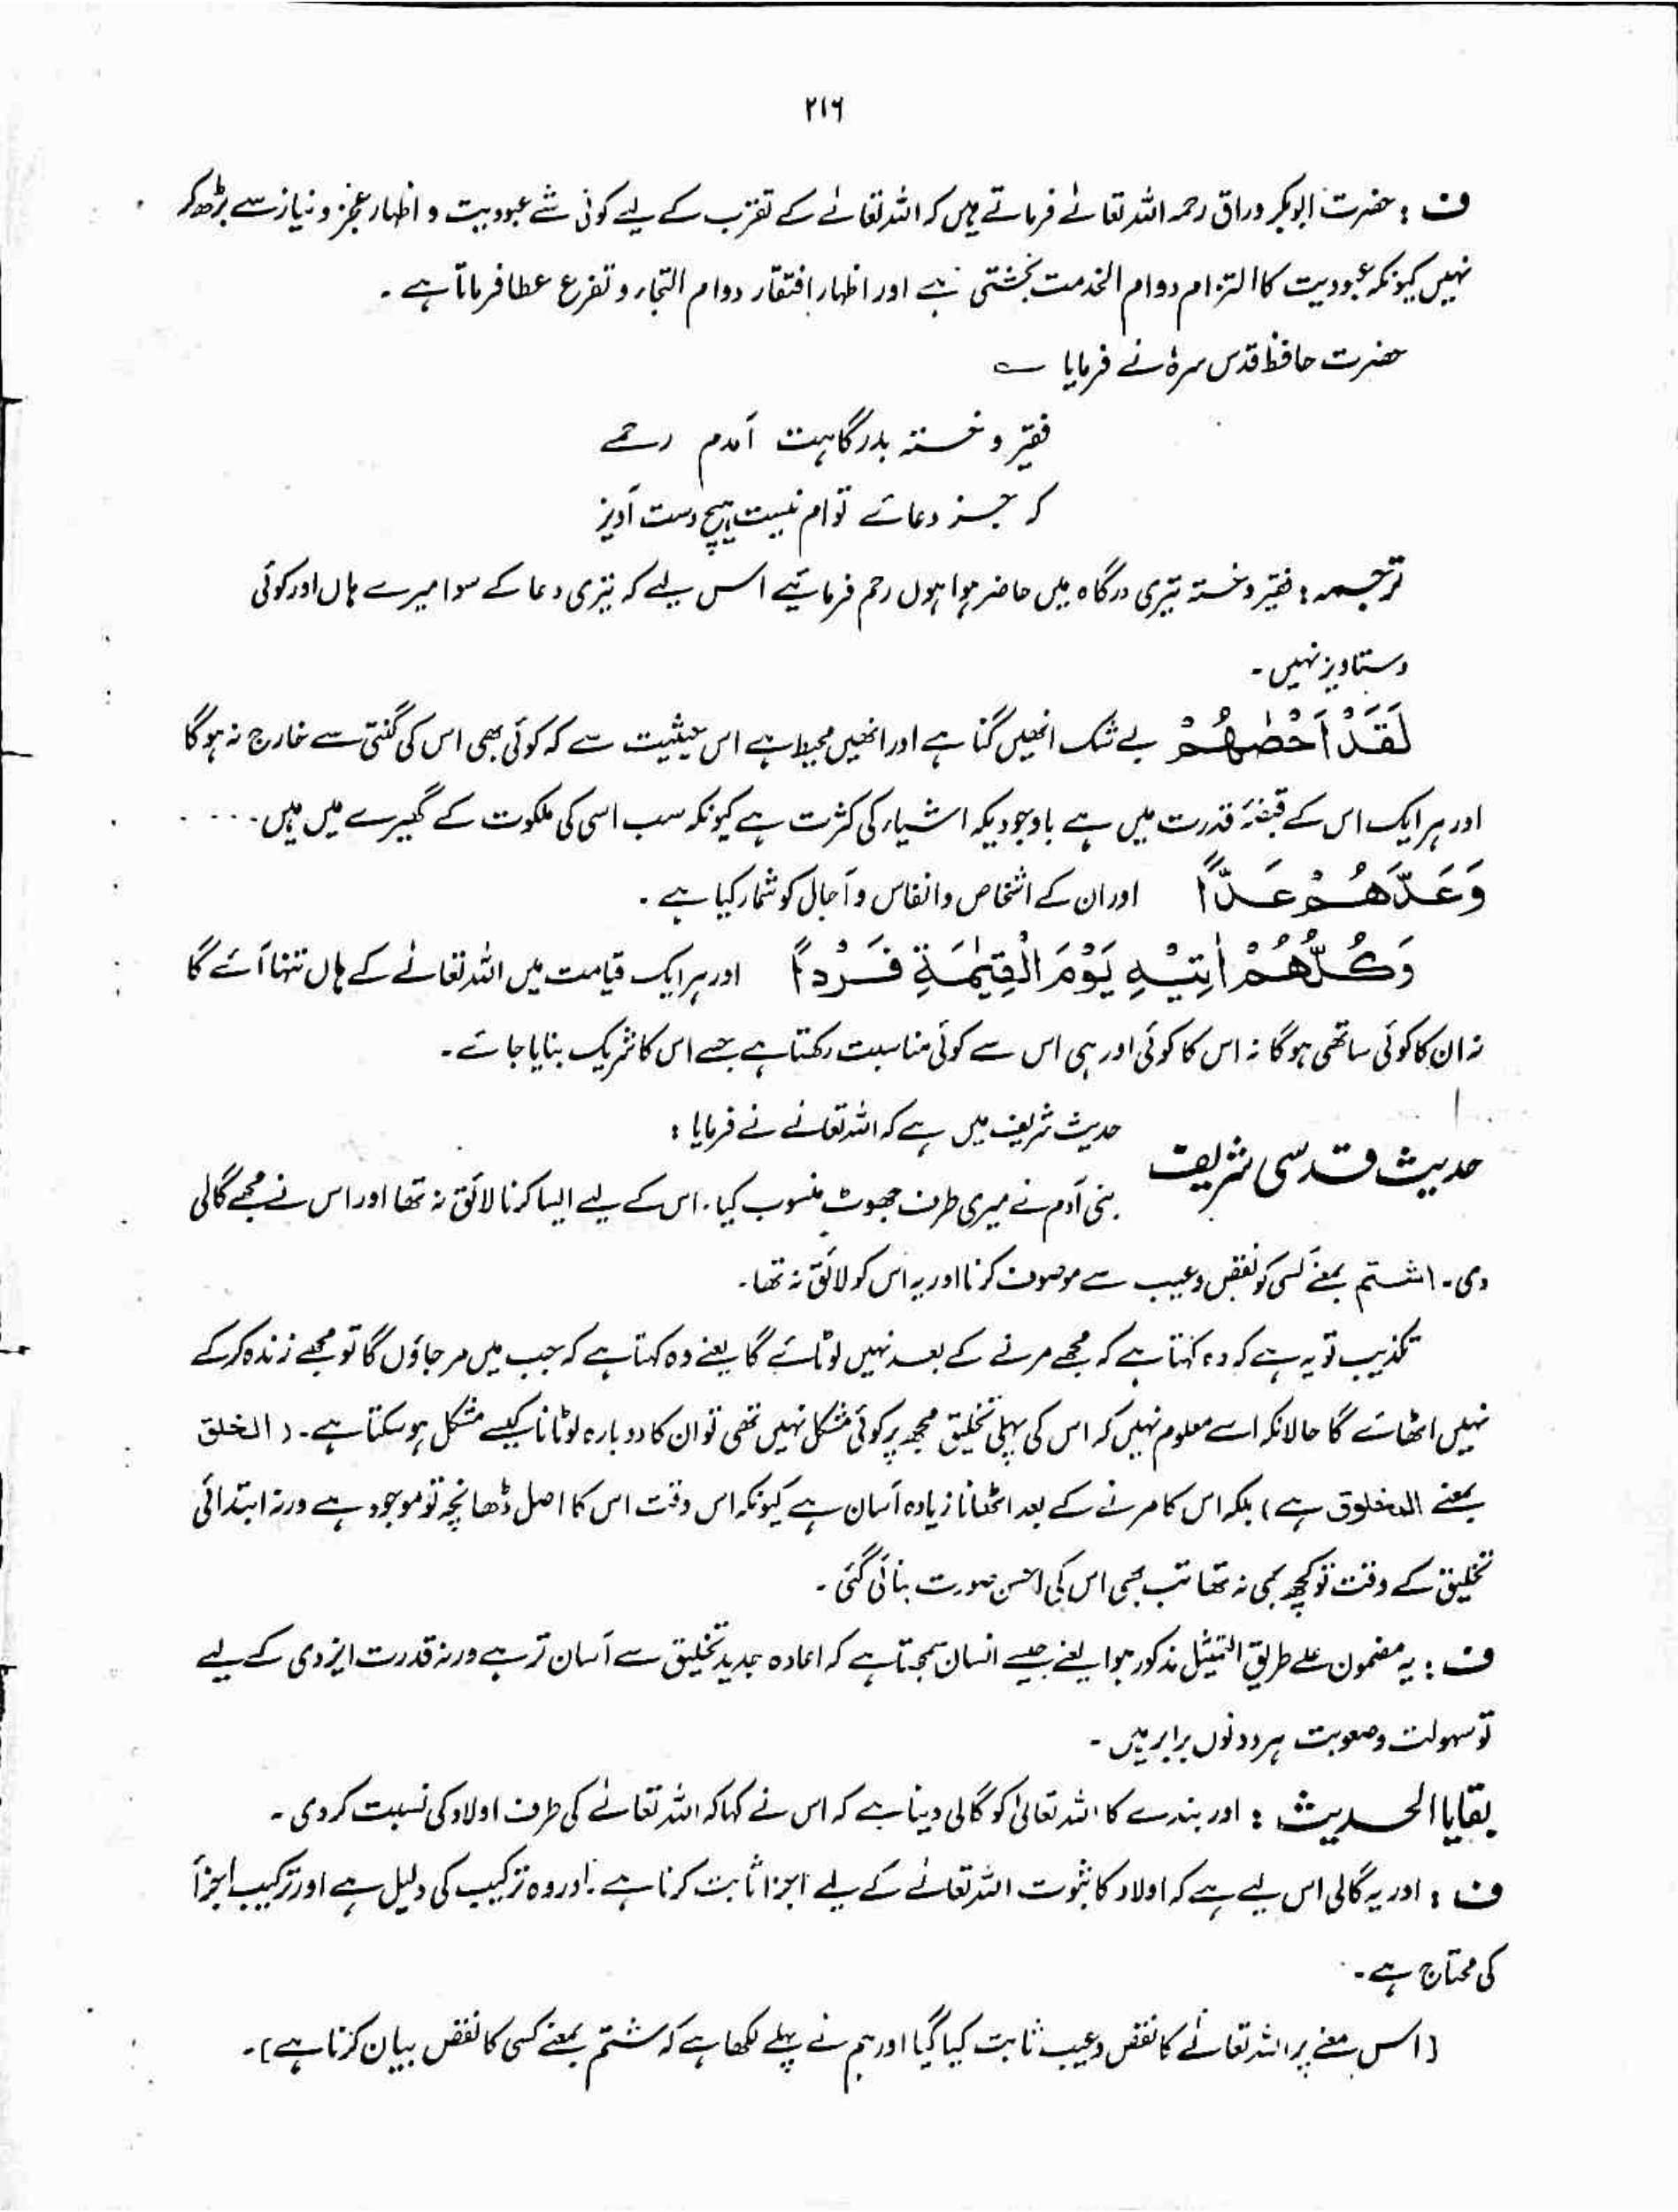 ۲۱۶
ف : حضرت ابوبکر وراق رحمہ اللہ تعالیٰ فرماتے ہیں کہ اللہ تعالیٰ کے تقرب کے لیے کوئی شے عبودیت و اظہار عجز و نیاز سے بڑھ کر
نہیں کیونکہ عبودیت کا التزام دوام الخدمت بخشتی ہے اور اظہار افتقار دوام التجاء و تضرع عطا فرماتا ہے ۔
حضرت حافظ قدس سرہٗ نے فرمایا ؎
فقیر و خستہ بدرگاہت آمدم رحمے
کہ جسز دعائے توام نیست ہیچ دست آویز
ترجمہ : فقیر و خستہ تیری درگاہ میں حاضر ہوا ہوں رحم فرمائیے اس لیے کہ تیری دعا کے سوا میرے ہاں اور کوئی
دستاویز نہیں ۔
لَقَدْ اَحْصٰهُمْ بے شک انھیں گنا ہے اور انھیں محیط ہے اس حیثیت سے کہ کوئی بھی اس کی گنتی سے خارج نہ ہوگا
اور ہر ایک اس کے قبضۂ قدرت میں ہے باوجودیکہ اشیاء کی کثرت ہے کیونکہ سب اسی کی ملکوت کے گھیرے میں ہیں ۔ . . .
وَعَدَّهُمْ عَدًّا اور ان کے اشخاص و انفاس و آجال کو شمار کیا ہے ۔
وَكُلُّهُمْ اٰتِيْهِ يَوْمَ الْقِيٰمَةِ فَرْدًا اور ہر ایک قیامت میں اللہ تعالیٰ کے ہاں تنہا آئے گا
نہ ان کا کوئی ساتھی ہوگا نہ اس کا کوئی اور ہی اس سے کوئی مناسبت رکھتا ہے جسے اس کا شریک بنایا جائے ۔
حدیث شریف میں ہے کہ اللہ تعالےٰ نے فرمایا :
حدیث قدسی شریف
بنی آدم نے میری طرف جھوٹ منسوب کیا ۔ اس کے لیے ایسا کرنا لائق نہ تھا اور اس نے مجھے گالی
دی ۔ الشتم بمعنے کسی کو نقص و عیب سے موصوف کرنا اور یہ اس کو لائق نہ تھا ۔
تکذیب تو یہ ہے کہ وہ کہتا ہے کہ مجھے مرنے کے بعد نہیں لوٹائے گا یعنے وہ کہتا ہے کہ جب میں مر جاؤں گا تو مجھے زندہ کر کے
نہیں اٹھائے گا حالانکہ اسے معلوم نہیں کہ اس کی پہلی تخلیق مجھ پر کوئی مشکل نہیں تھی تو ان کا دوبارہ لوٹانا کیسے مشکل ہو سکتا ہے ۔ ( الخلق
بمعنے المخلوق ہے ) بلکہ اس کا مرنے کے بعد اٹھانا زیادہ آسان ہے کیونکہ اس وقت اس کا اصل ڈھانچہ تو موجود ہے ورنہ ابتدائی
تخلیق کے وقت تو کچھ بھی نہ تھا تب بھی اس کی احسن صورت بنائی گئی ۔
ف : یہ مضمون علے طریق التمثیل مذکور ہوا یعنے جیسے انسان سمجھتا ہے کہ اعادہ جدید تخلیق سے آسان تر ہے ورنہ قدرت ایزدی کے لیے
تو سہولت و صعوبت ہر دونوں برابر ہیں ۔
بقایا الحدیث : اور بندے کا اللہ تعالیٰ کو گالی دینا ہے کہ اس نے کہا کہ اللہ تعالےٰ کی طرف اولاد کی نسبت کر دی ۔
ف : اور یہ گالی اس لیے ہے کہ اولاد کا ثبوت اللہ تعالےٰ کے لیے اجزا ثابت کرنا ہے ۔ اور وہ ترکیب کی دلیل ہے اور ترکیب اجزأ
کی محتاج ہے ۔
( اس معنے پر اللہ تعالےٰ کا نقص و عیب ثابت کیا گیا اور ہم نے پہلے لکھا ہے کہ شتم بمعنے کسی کا نقص بیان کرنا ہے ) ۔